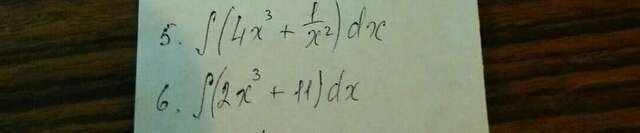 5. ∫(4x³ + 1/x²)dx
6. ∫(2x³ + 11)dx